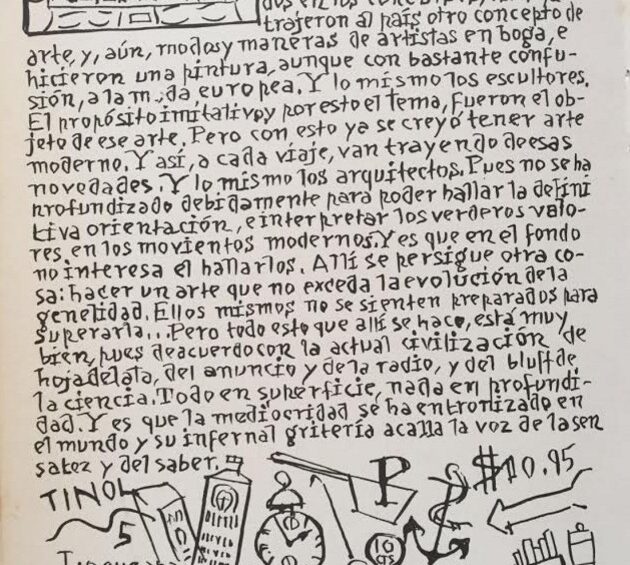 dos en los
trajeron al país otro concepto de
arte, y, aún, modas y maneras de artistas en boga, e
hicieron una pintura, aunque con bastante confu-
sión, a la moda europea. Y lo mismo los escultores.
El propósito imitativo y por esto el tema, fueron el ob-
jeto de ese arte. Pero con esto ya se creyó tener arte
moderno. Y así, a cada viaje, van trayendo de esas
novedades. Y lo mismo los arquitectos. Pues no se ha
profundizado debidamente para poder hallar la defini
tiva orientación, e interpretar los verderos valo-
res, en los movientos modernos. Y es que en el fondo
no interesa el hallarlos. Allí se persigue otra co-
sa: hacer un arte que no exceda la evolución de la
genelidad. Ellos mismos no se sienten preparados para
superarla... Pero todo esto que allí se hace, está muy
bien, pues de acuerdo con la actual civilización de
hojadelata, del anuncio y de la radio, y del bluff de
la ciencia. Todo en superficie, nada en profundi-
dad. Y es que la mediocridad se ha entronizado en
el mundo y su infernal gritería acalla la voz de la sen
satez y del saber.
P $10.95
TINOL
5